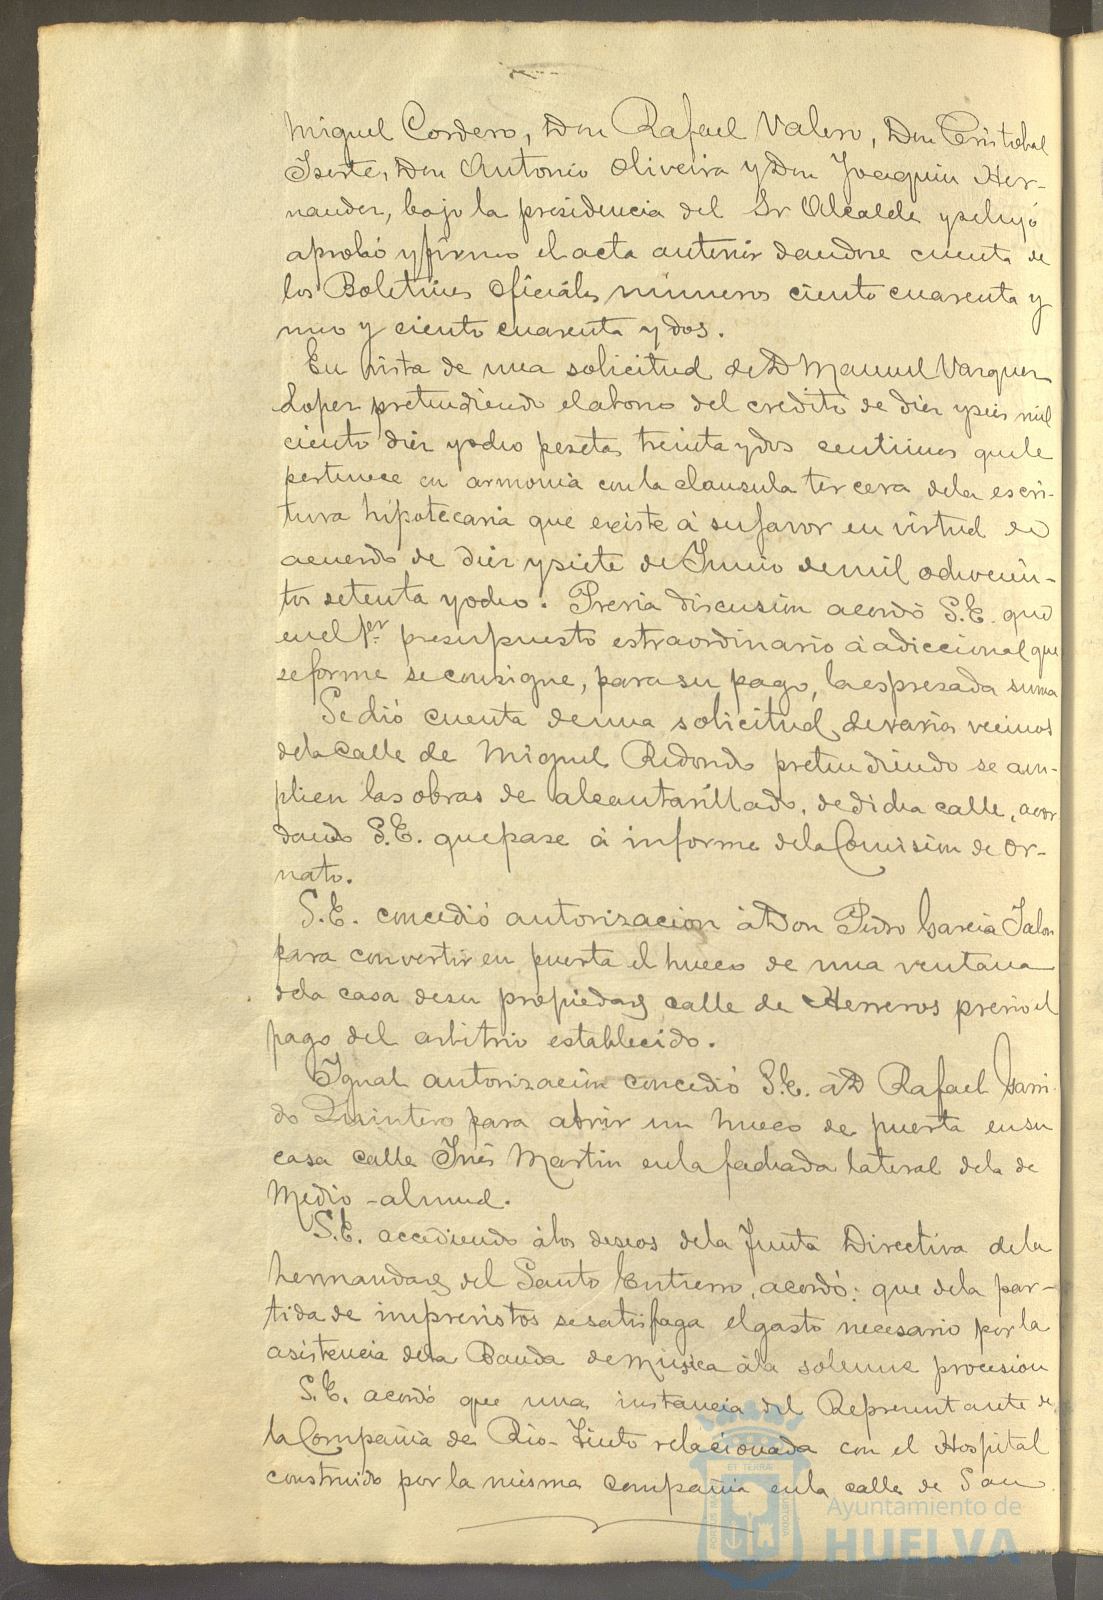 Miguel Cordero, Don Rafael Valero, Don Cristobal
Iserte, Don Antonio Oliveira y Don Joaquin Her-
nandez, bajo la presidencia del Sr Alcalde y se leyó
aprobó y firmó el acta anterior dandose cuenta de
los Boletines Oficiales números ciento cuarenta y
uno y ciento cuarenta y dos.
En vista de una solicitud de D Manuel Vazquez
Lopez pretendiendo el abono del credito de diez y seis mil
ciento diez y ocho pesetas treinta y dos centimos que le
pertenece en armonia con la clausula tercera de la escri-
tura hipotecaria que existe á su favor en virtud de
acuerdo de diez y siete de Junio de mil ochocien-
tos setenta y ocho. Previa discusión acordó S.E. que
en el pr presupuesto estraordinario ó adiccional que
se forme se consigne, para su pago, la espresada suma
Se dió cuenta de una solicitud de varios vecinos
de la calle de Miguel Redondo pretendiendo se am-
plien las obras de alcantarillado, de dicha calle, acor
dando S.E. que pase á informe de la Comisión de Or-
nato.
S.E. concedió autorización á Don Pedro Garcia Jalon
para convertir en puerta el hueco de una ventana
de la casa de su propiedad calle de Herreros previo el
pago del arbitrio establecido.
Igual autorización concedió S.E. á D Rafael Garri-
do Quintero para abrir un hueco de puerta en su
casa calle Inés Martin en la fachada lateral de la de
Medio-almud.
S.E. accediendo á los deseos de la Junta Directiva de la
hermandad del Santo Entierro, acordó: que de la par-
tida de imprevistos se satisfaga el gasto necesario por la
asistencia de la Banda de música á la solemne procesión
S.E. acordó que una instancia del Representante de
la Compañia de Rio-Tinto relacionada con el Hospital
construido por la misma compañia en la calle de San
Ayuntamiento de
HUELVA